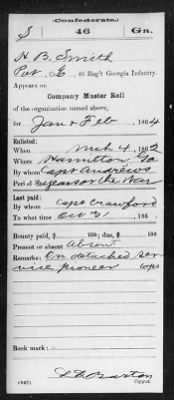 (Confederate.)
S 46 Ga.
H. B. Smith
Pvt, Co. E, 46 Reg't Georgia Infantry.
Appears on
Company Muster Roll
of the organization named above,
for Jan & Feb, 1864
Enlisted:
When Mch 4, 1862
Where Hamilton, Ga
By whom Capt Andrews
Period 3 years or the War
Last paid:
By whom Capt Crawford
To what time Oct 31, 186
Bounty paid $ 100; due $ 100
Present or absent Absent
Remarks: On detached ser-
vice pioneer corps
Book mark:
(642) Copyist.